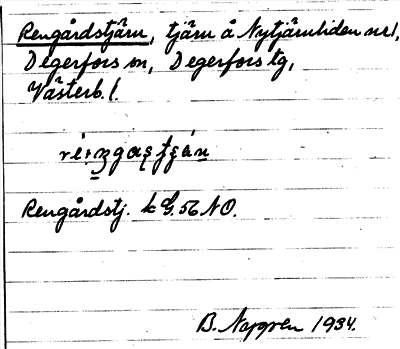 Rengårdstjärn, tjärn å Nytjärnliden nr 1,
Degerfors sn, Degerfors tg,
Västerb. l.
Rengårdstj. k G. 56 NO.
B. Nygren 1934.